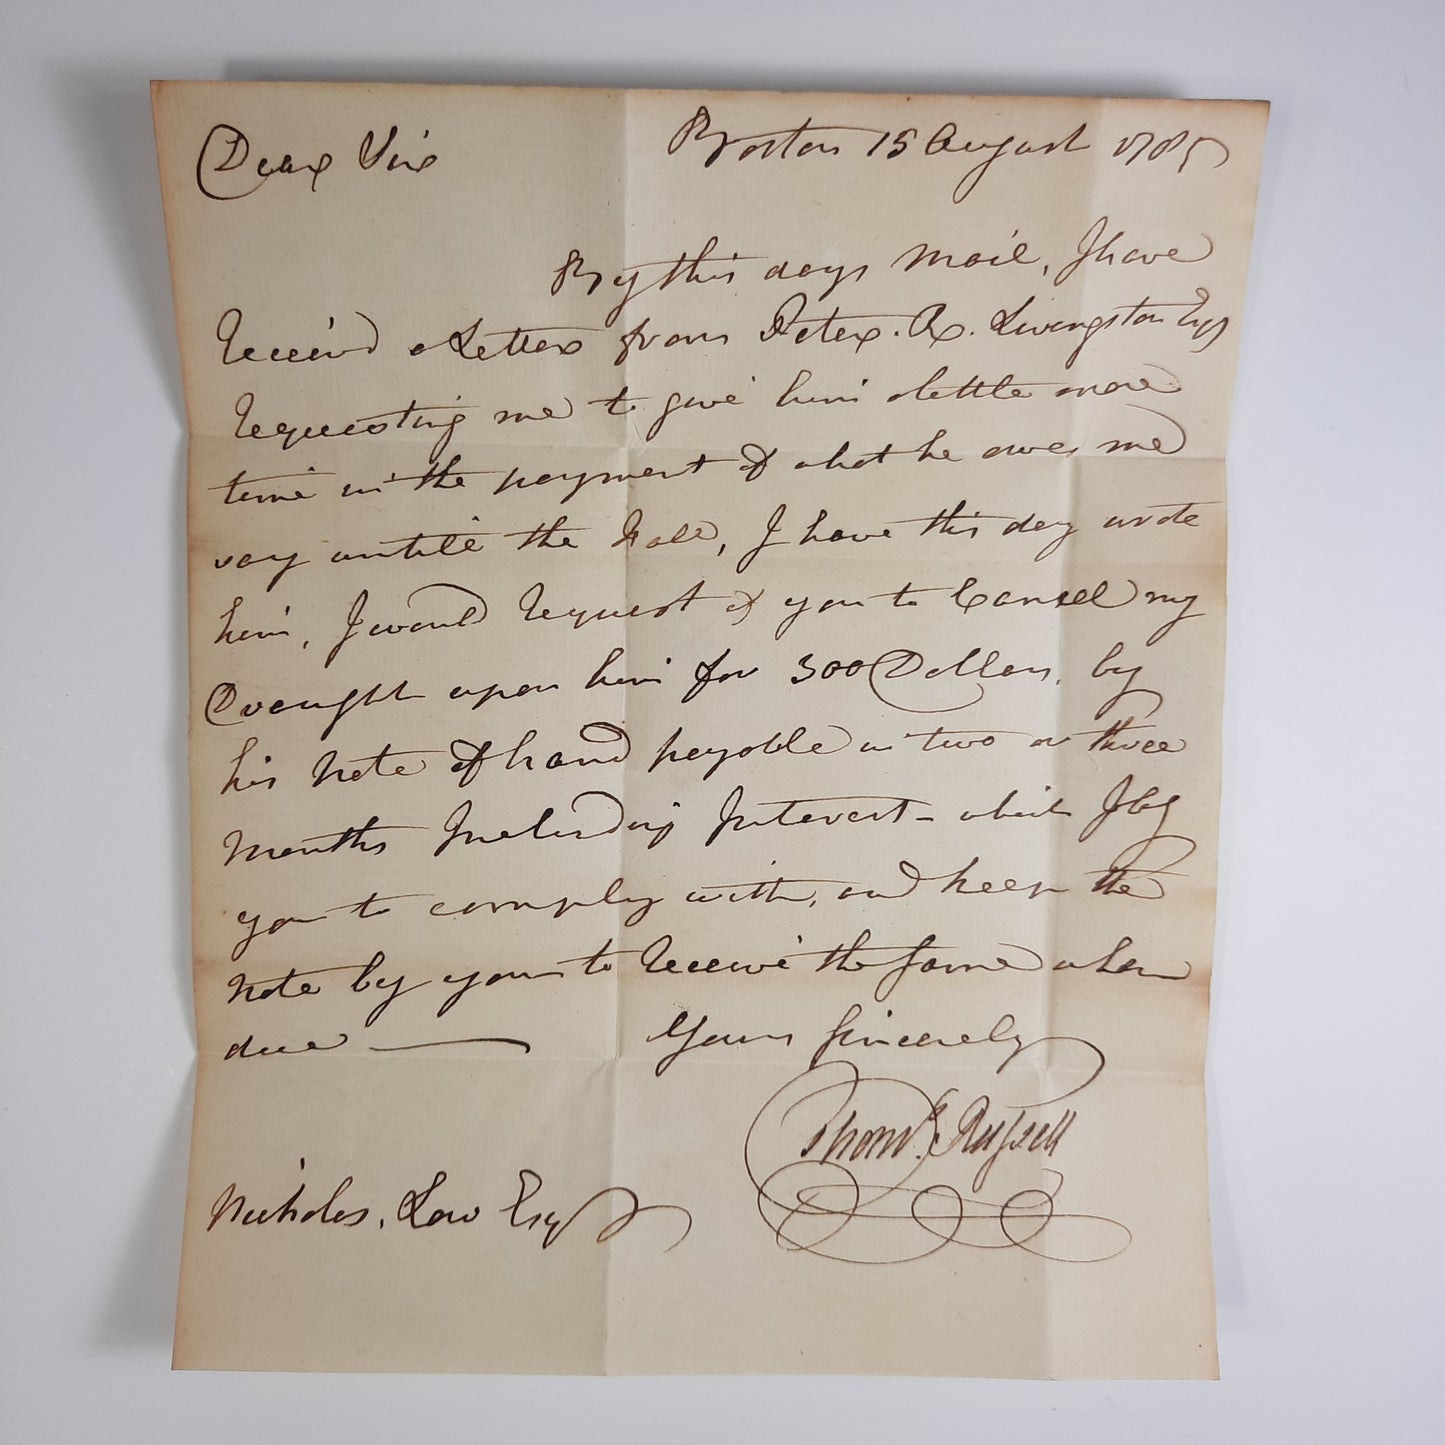 Dear Sir
Boston 15 August 1785
By this days Mail, I have
Received a Letter from Peter. R. Livingston Esqr
Requesting me to give him a little more
time in the payment of what he owes me
say untill the Fall, I have this day wrote
him, I would request of you to Cansell my
Draught upon him for 300 Dollars, by
his Note of hand payable in two or three
Months Including Interest - which I beg
you to comply with, and keep the
Note by you to Receive the same when
due
Yours Sincerely
Thoms. Russell
Nicholas. Low Esqr